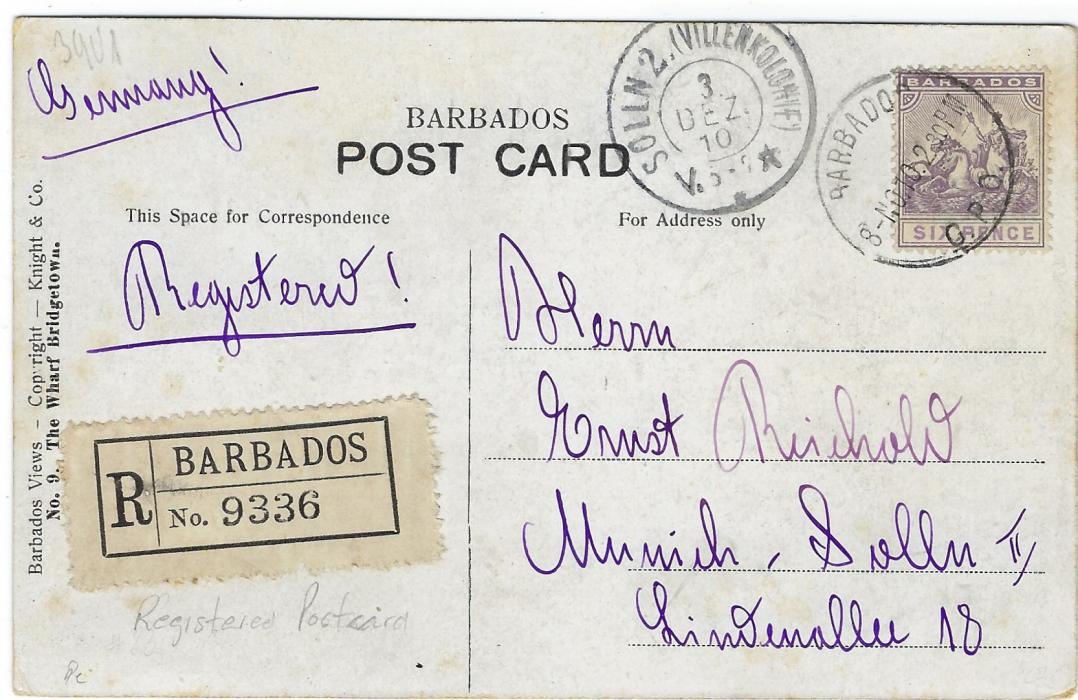 Germany!
BARBADOS
POST CARD
SOLLN 2. (VILLENKOLONIE)
3.
DEZ.
10
V.
BARBADOS
8-NO 10. 2 30PM
G.P.O.
BARBADOS
SIX PENCE
This Space for Correspondence
For Address only
Registered!
Herrn
Ernst Reichold
Munich, Solln II/
Lindenallee 18
R BARBADOS
No. 9336
Registered Postcard
Barbados Views – Copyright — Knight & Co.
No. 9. The Wharf Bridgetown.